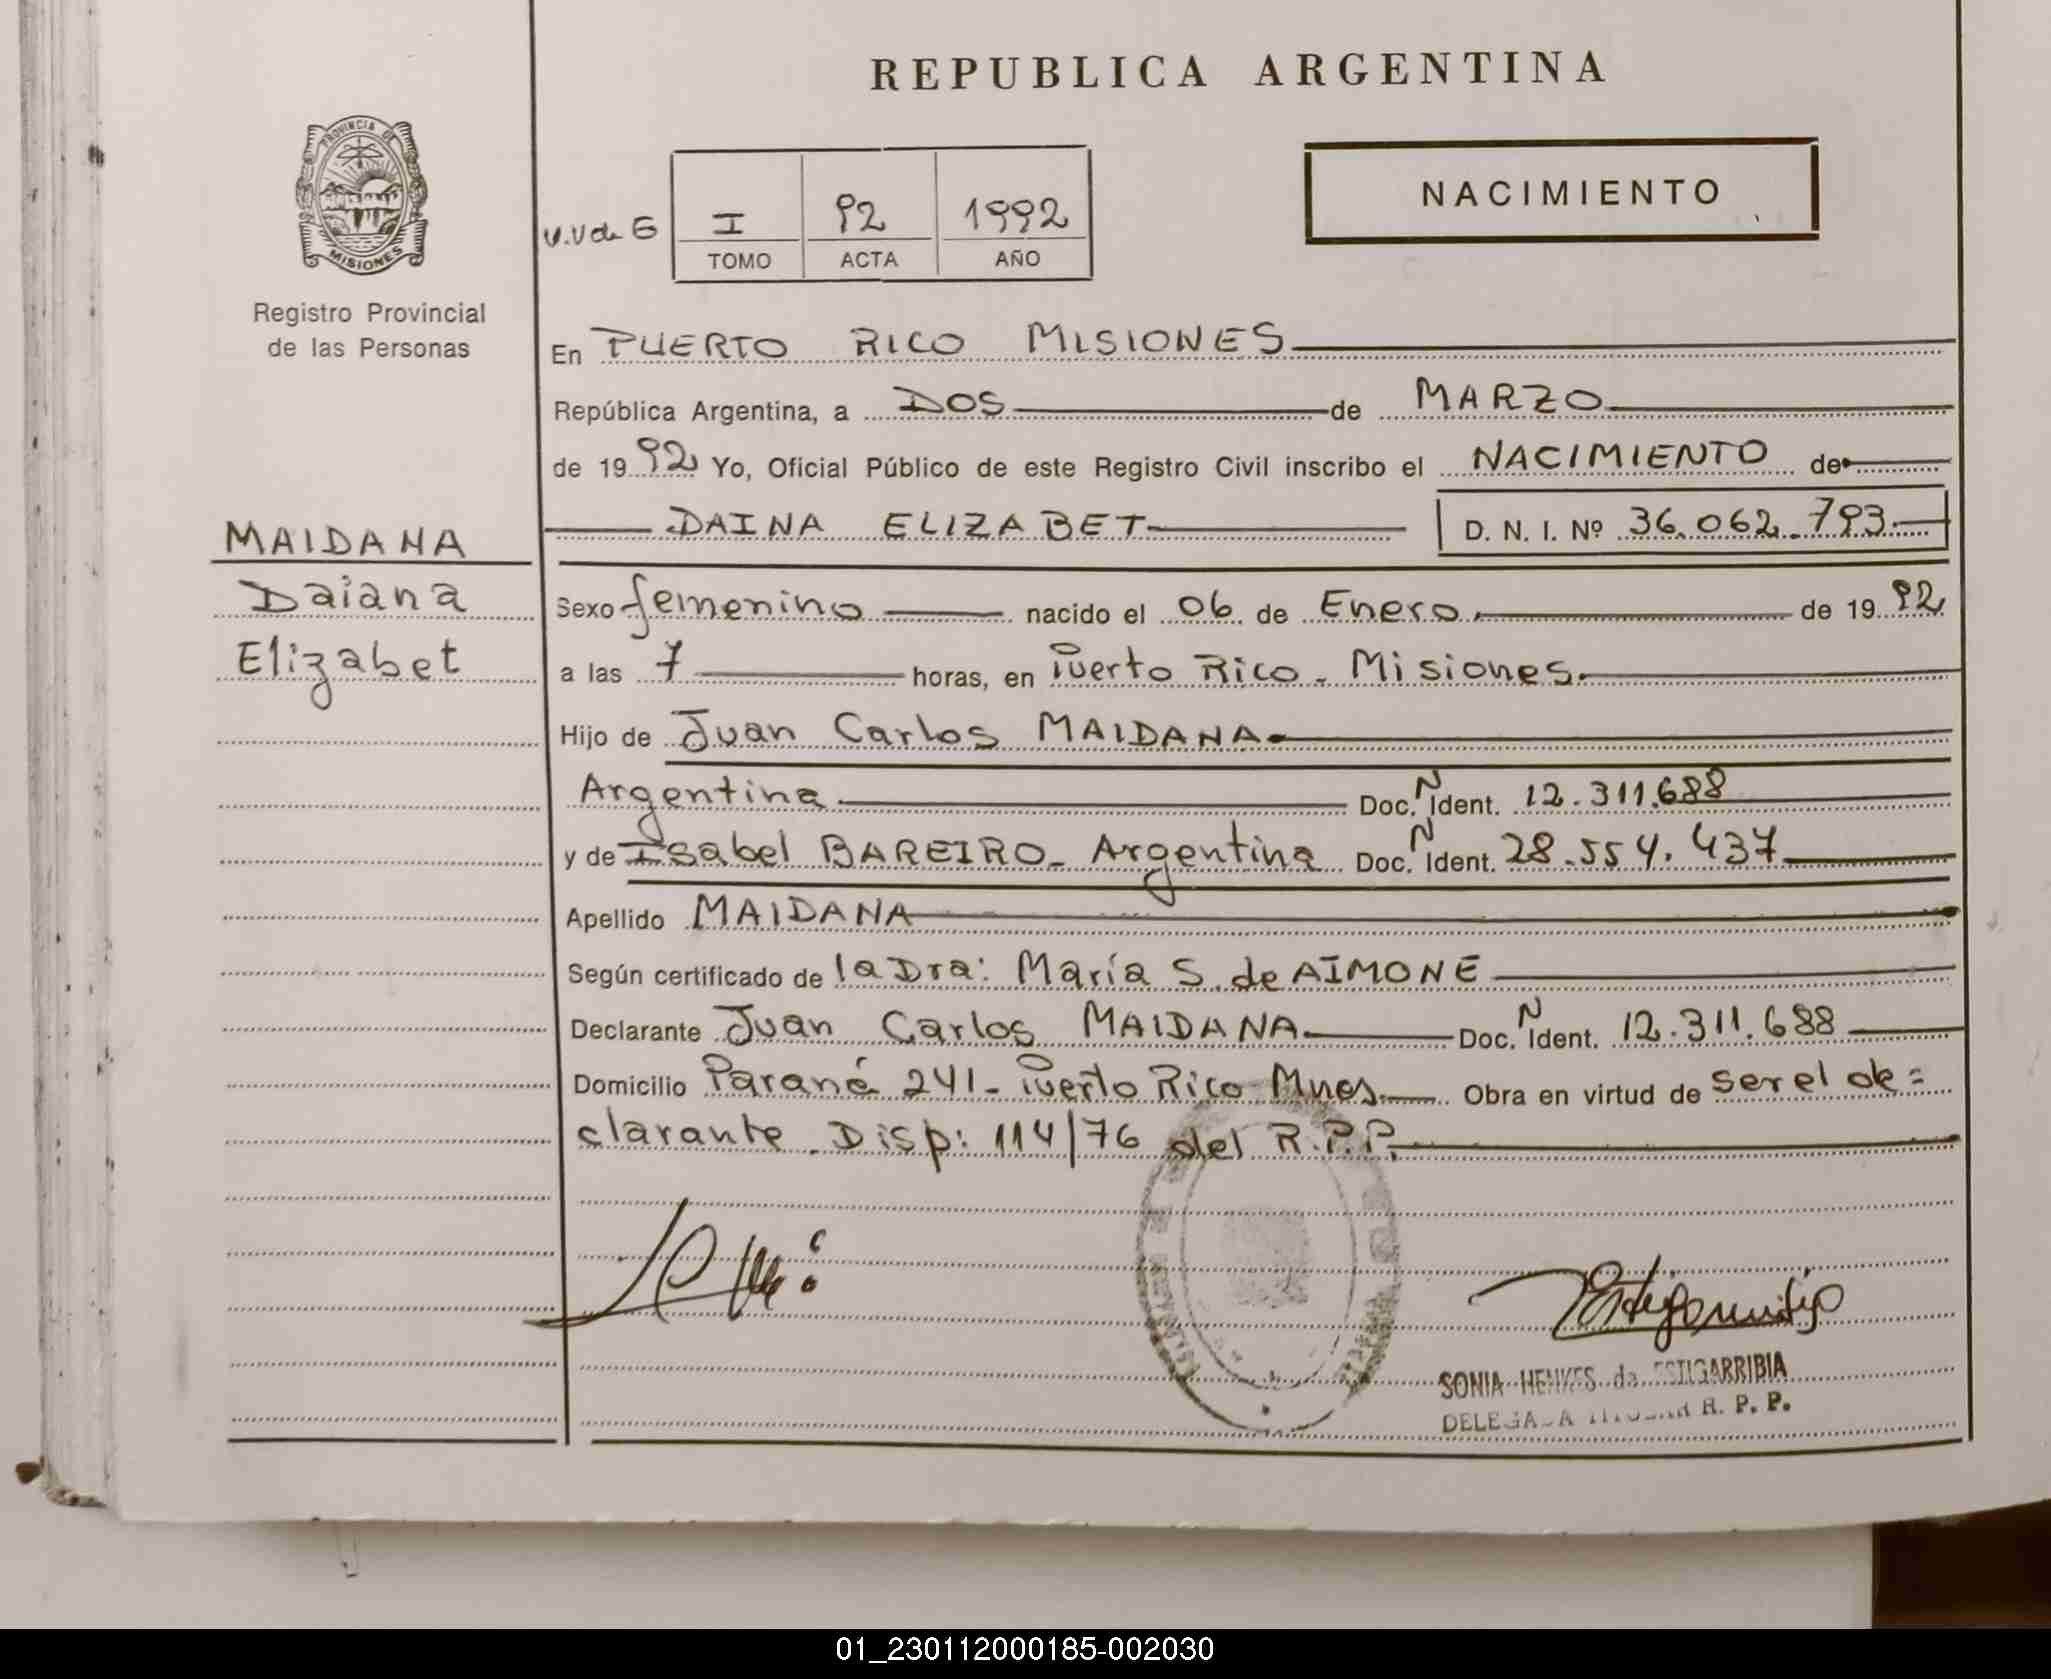 REPUBLICA ARGENTINA
PROVINCIA DE
MISIONES
Registro Provincial
de las Personas
NACIMIENTO
I 92 1992
TOMO ACTA AÑO
En PUERTO RICO MISIONES
República Argentina, a DOS de MARZO
de 1992 Yo, Oficial Público de este Registro Civil inscribo el NACIMIENTO de
DAINA ELIZABET D. N. I. Nº 36.062.793
MAIDANA
Daiana
Elizabet
Sexo femenino nacido el 06 de Enero de 1992
a las 7 horas, en Puerto Rico - Misiones.
Hijo de Juan Carlos MAIDANA
Argentina Doc. N Ident. 12.311.688
y de Isabel BAREIRO - Argentina Doc. N Ident. 28.554.437
Apellido MAIDANA
Según certificado de la Dra: María S. de AIMONE
Declarante Juan Carlos MAIDANA Doc. N Ident. 12.311.688
Domicilio Paraná 241 - Puerto Rico Mnes Obra en virtud de ser el de=
clarante. Disp: 114/76 del R.P.P.
SONIA HENKES de ESTIGARRIBIA
R. P. P.
01_230112000185-002030